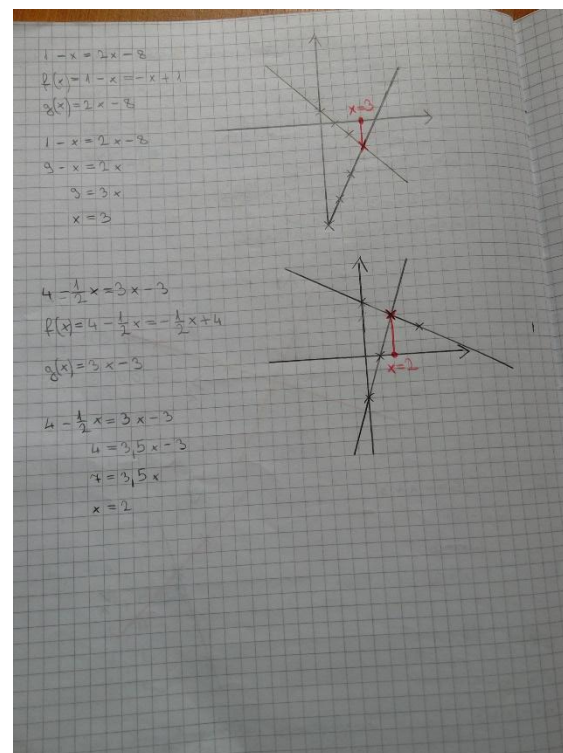 1 - x = 2x - 8
f(x) = 1 - x = -x + 1
g(x) = 2x - 8
1 - x = 2x - 8
9 - x = 2x
9 = 3x
x = 3
x=3
4 - 1/2 x = 3x - 3
f(x) = 4 - 1/2 x = -1/2 x + 4
g(x) = 3x - 3
4 - 1/2 x = 3x - 3
4 = 3,5x - 3
7 = 3,5x
x = 2
x=2